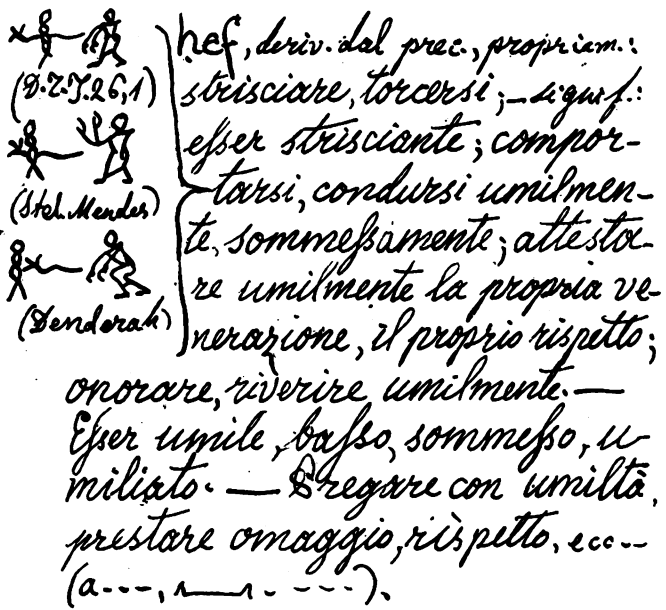 hef, deriv. dal prec., propriam.:
(D.Z.J.26,1) strisciare, torcersi; — signif.:
esser strisciante; compor-
(Stel. Mendes) tarsi, condursi umilmen-
te, sommessamente; attesta-
re umilmente la propria ve-
(Denderah) nerazione, il proprio rispetto;
onorare, riverire umilmente. —
Esser umile, basso, sommesso, u-
miliato. — Pregare con umiltà,
prestare omaggio, rispetto, ecc--
(a---, . ----).